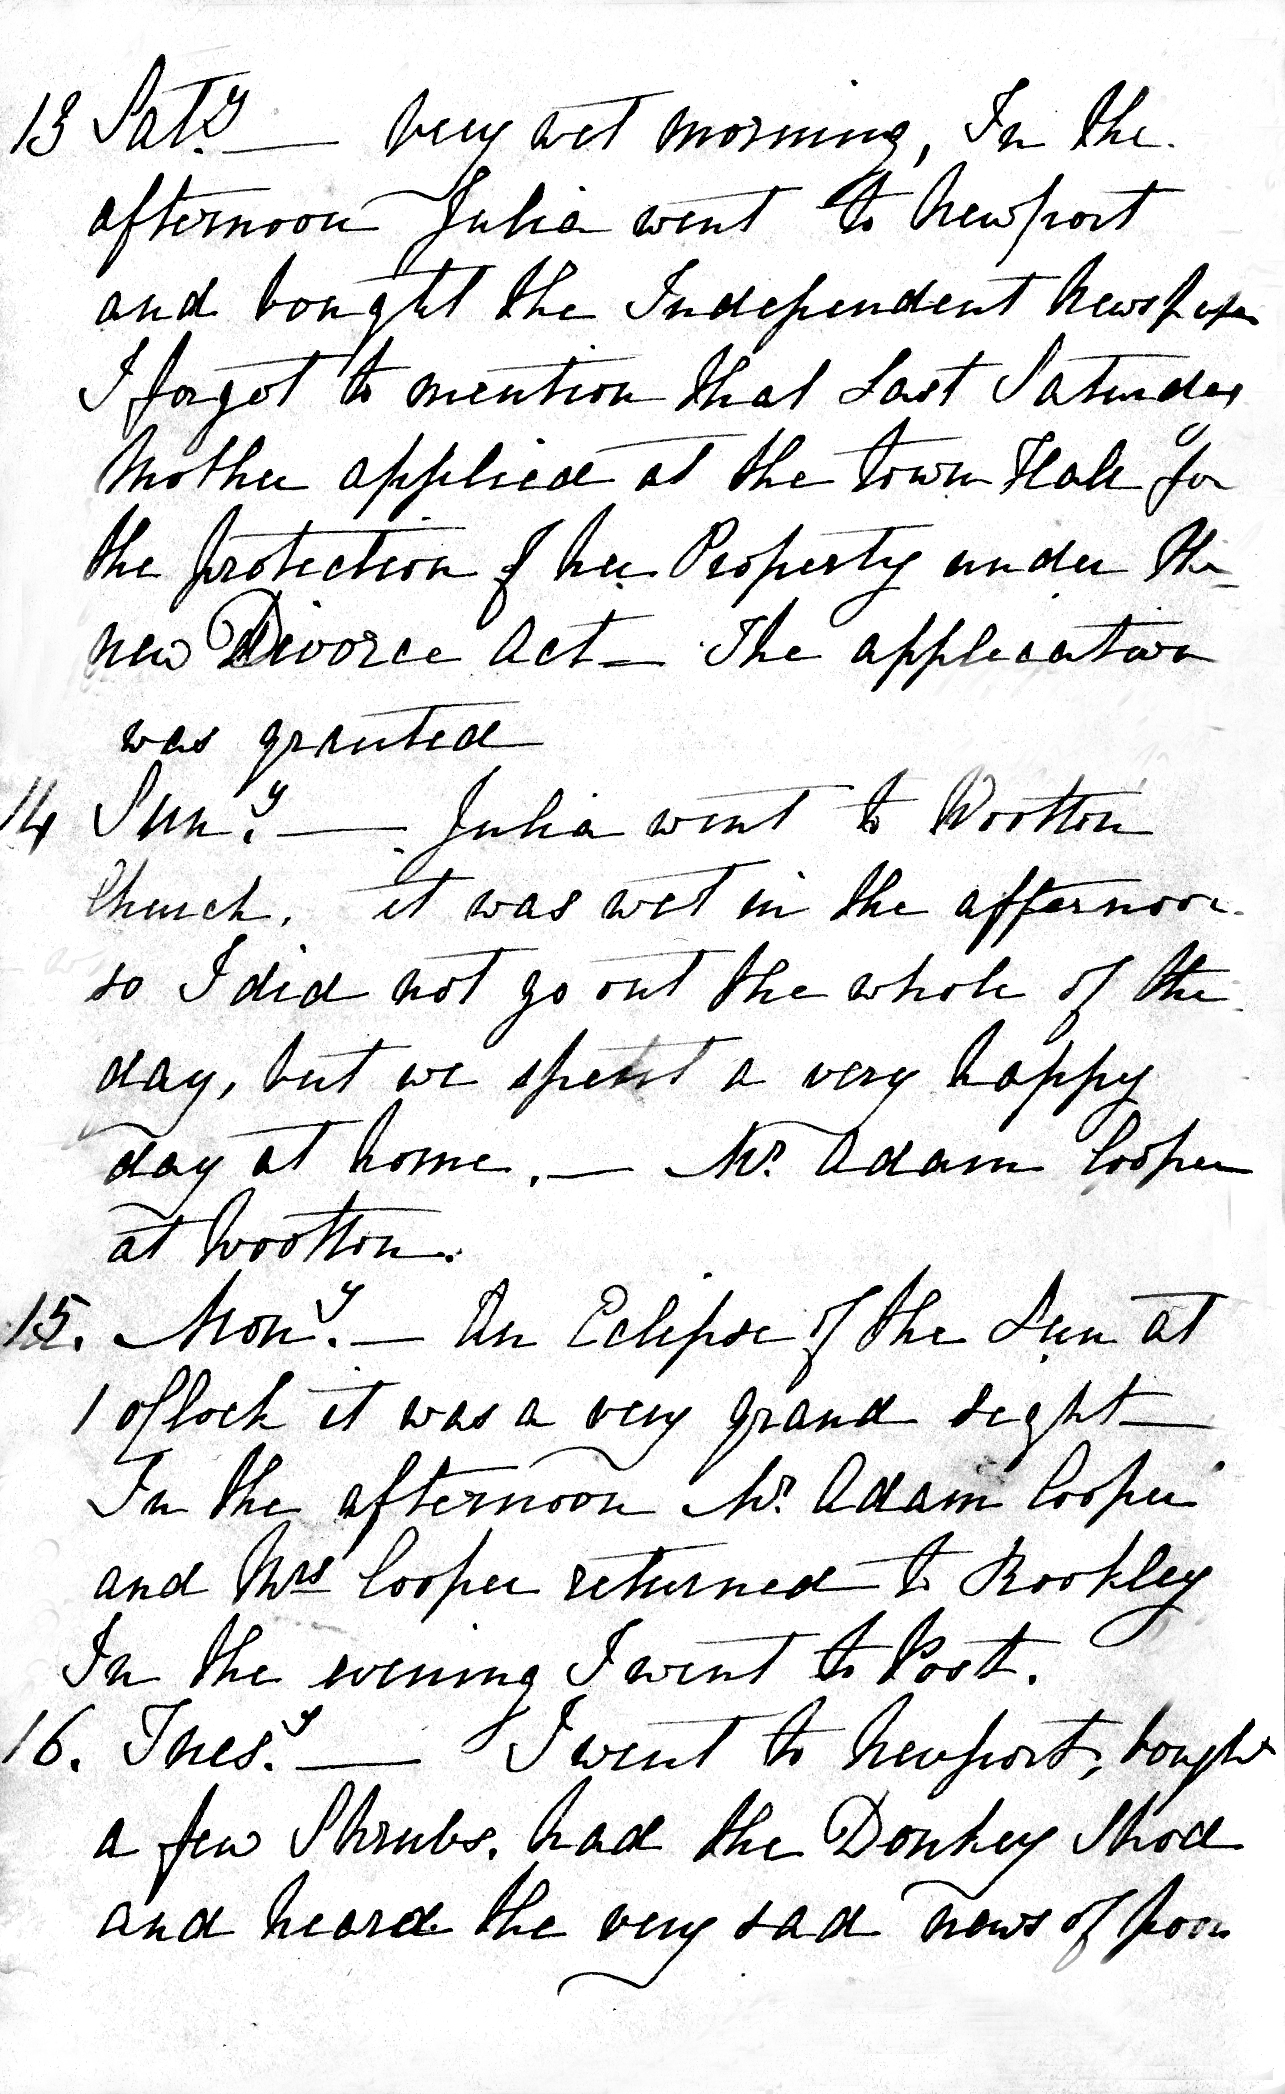 13 Saty. — Very wet morning, In the
afternoon Julia went to Newport
and bought the Independent Newspaper
I forgot to mention that Last Saturday
Mother applied at the town Hall for
the protection of her Property under the
new Divorce Act — The application
was granted
14 Suny. — Julia went to Wootton
Church. it was wet in the afternoon
so I did not go out the whole of the
day, but we spent a very happy
day at home. — Mr. Adam Cooper
at Wootton.
15. Mony. — An Eclipse of the Sun at
1 oClock it was a very grand sight —
In the afternoon Mr. Adam Cooper
and Mrs Cooper returned to Rookley
In the evening I went to Post.
16. Tuesy. — I went to Newport, bought
a few Shrubs. had the Donkey Shod
and heard the very sad news of poor